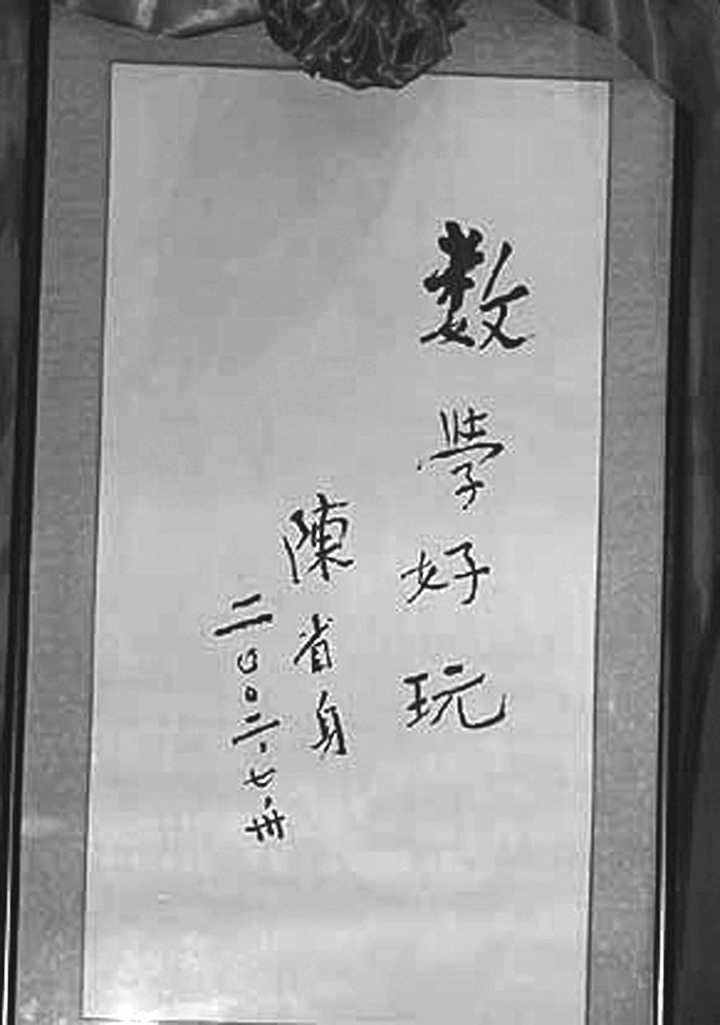 数学好玩
陳省身
二〇〇二.七.卅